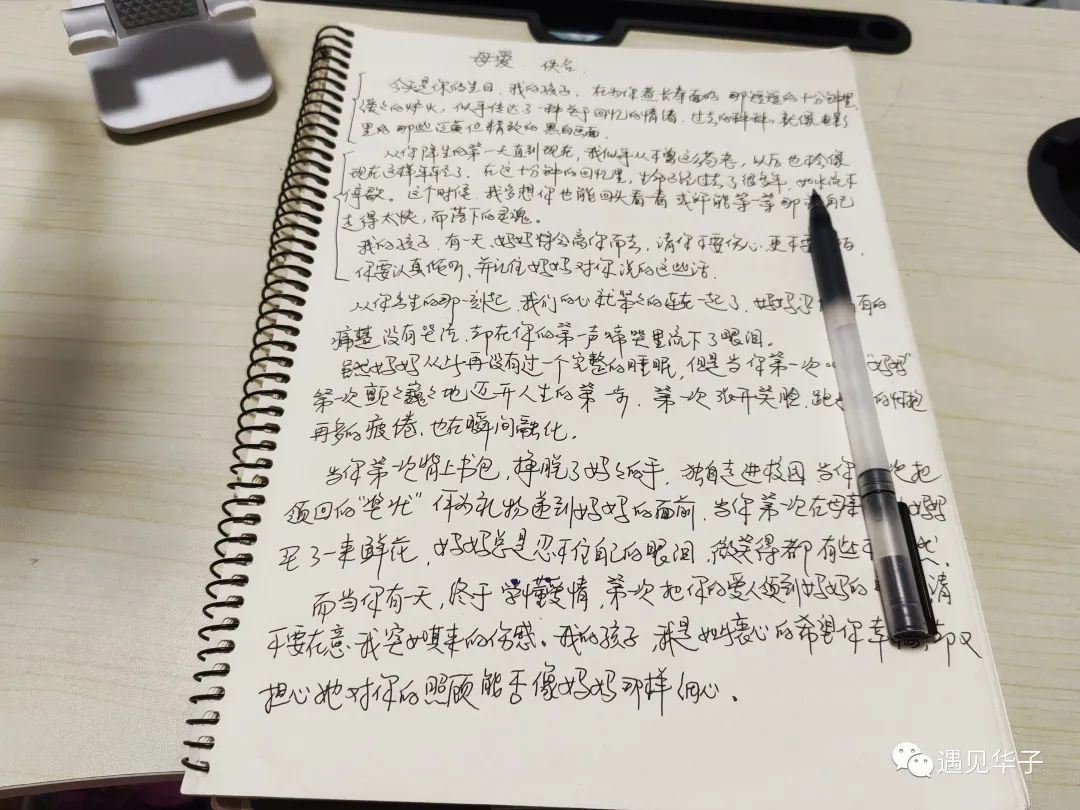 母爱 佚名
今天是你的生日,我的孩子,在为你煮长寿面的那短短的十分钟里
的炉火,似乎传达了一种关于回忆的情绪,过去的种种,就像电影
里的那些泛黄但精致的黑白画面
从你降生的第一天直到现在,我似乎从不曾这苍老,以后也不会像
现在这样年轻了.在这十分钟的回忆里,生命已经过去了很多年,如水流不
停歇。这个时候,我多想你也能回头看一看或许能等一等那自己
走得太快,而落下的灵魂。
我的孩子,有一天,妈妈将会离你而去,请你不要伤心,更不要
你要认真倾听,并记住妈妈对你说的这些话.
从你出生的那一刻起,我们的心就紧紧的连在一起了,妈妈有的
痛楚没有哭泣,却在你的第一声啼哭里流下了眼泪。
虽然妈妈从此再没有过一个完整的睡眠,但是当你第一次"妈妈"
第一次颤颤巍巍地迈开人生的第一步,第一次张开笑脸,跑的怀抱
再多的疲倦,也在瞬间融化.
当你第一次背上书包,挣脱了妈妈的手,独自走进校园 当你次把
领回的"奖状"作为礼物递到妈妈的面前,当你第一次在母亲妈妈
买了一束鲜花,妈妈总是忍不住自己的眼泪,微笑得都有些不
而当你有一天,终于学懂爱情,第一次把你的爱人领到妈妈的请
不要在意我突如其来的伤感。我的孩子,我是如此衷心的希望你幸福,却又
担心她对你的照顾能否像妈妈那样细心。
遇见华子